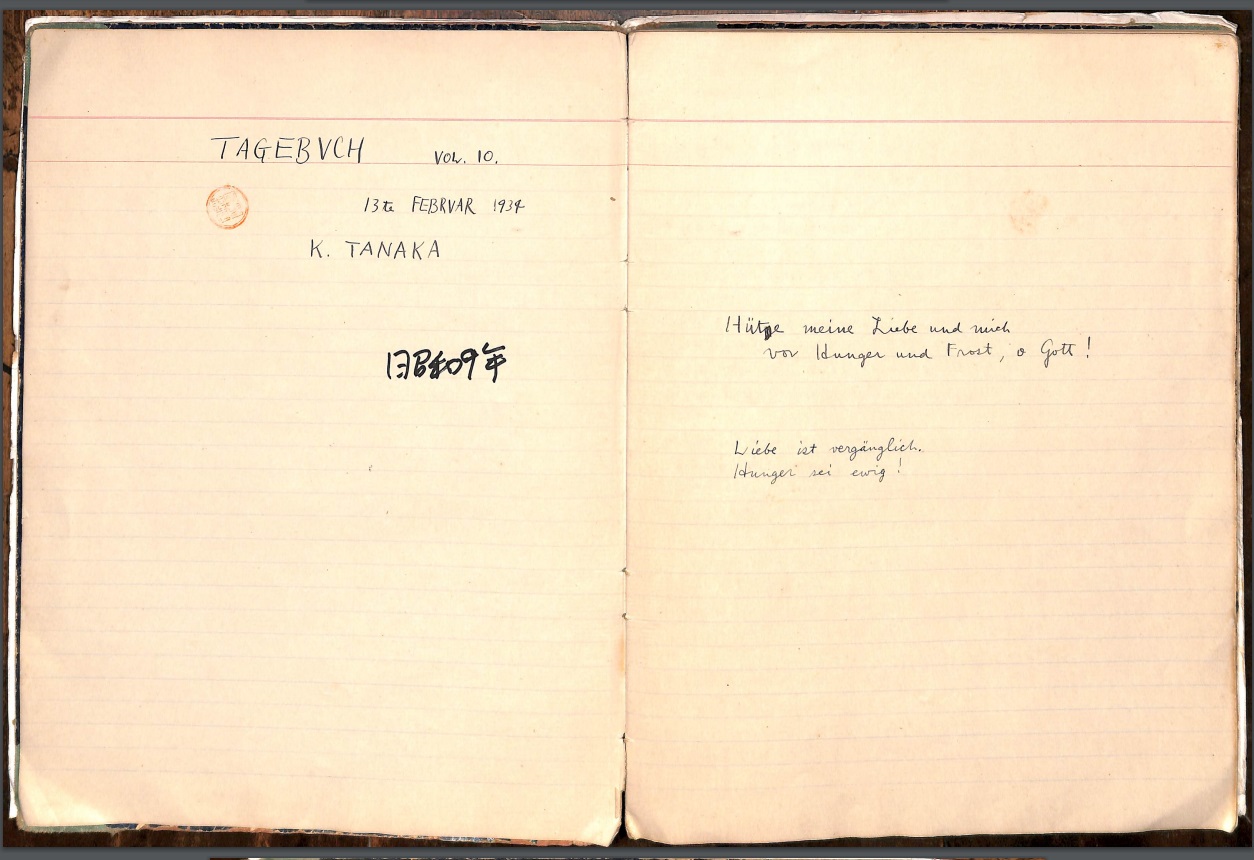 TAGEBVCH VOL. 10.
13te FEBRVAR 1934
K. TANAKA
昭和09年
meine Liebe und mich
vor Hunger und Frost, o Gott!
Liebe ist vergänglich.
Hunger sei ewig!